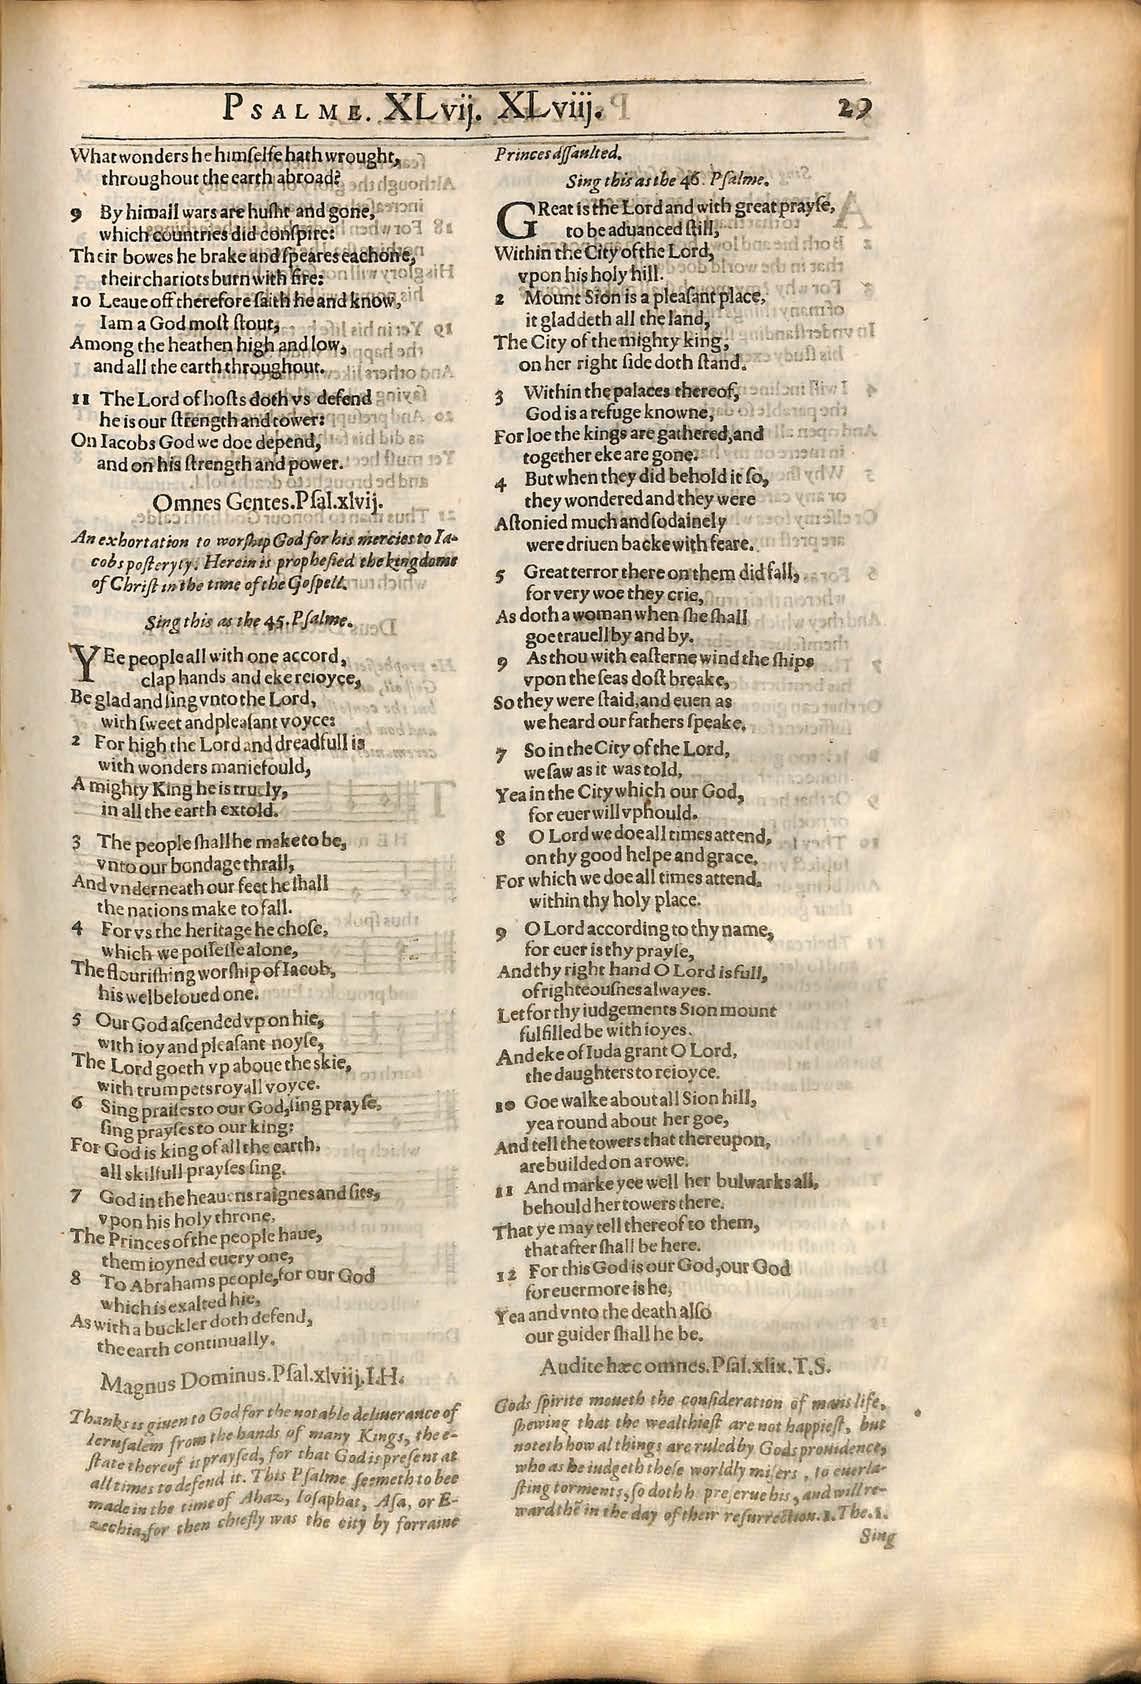 PSALME. XLvij. XLviij. 29
What wonders he himselfe hath wrought,
throughout the earth abroad?
9 By him all wars are husht and gone,
which countries did conspire:
Their bowes he brake and speares eachone,
their chariots burn with fire:
10 Leaue off therefore saith he and know,
I am a God most stout,
Among the heathen high and low,
and all the earth throughout.
11 The Lord of hosts doth vs defend
he is our strength and tower:
On Iacobs God we doe depend,
and on his strength and power.
Omnes Gentes. Psal. xlvij.
An exhortation to worship God for his mercies to Ia-
cobs posteryty. Herein is prophesied the kingdome
of Christ in the time of the Gospell.
Sing this as the 45. Psalme.
YEe people all with one accord,
clap hands and eke reioyce,
Be glad and sing vnto the Lord,
with sweet and pleasant voyce:
2 For high the Lord and dreadfull is
with wonders maniefould,
A mighty King he is truely,
in all the earth extold.
3 The people shall he make to be,
vnto our bondage thrall,
And vnderneath our feet he shall
the nations make to fall.
4 For vs the heritage he chose,
which we possesse alone,
The flourishing worship of Iacob,
his welbeloued one.
5 Our God ascended vp on hie,
with ioy and pleasant noyse,
The Lord goeth vp aboue the skie,
with trumpets royall voyce.
6 Sing praises to our God, sing prayse,
sing prayses to our king:
For God is king of all the earth,
all skilfull prayses sing.
7 God in the heauens raignes and sits,
vpon his holy throne,
The Princes of the people haue,
them ioyned euery one,
8 To Abrahams people, for our God
which is exalted hie,
As with a buckler doth defend,
the earth continually.
Magnus Dominus. Psal. xlviij. I.H.
Thanks is giuen to God for the notable deliuerance of
Ierusalem from the hands of many Kings, the e-
state thereof is praysed, for that God is present at
all times to defend it. This Psalme seemeth to bee
made in the time of Ahaz, Iosaphat, Asa, or E-
zechia, for then chiefly was the city by forraine
Princes assaulted.
Sing this as the 46. Psalme.
GReat is the Lord and with great prayse,
to be aduanced still,
Within the City of the Lord,
vpon his holy hill.
2 Mount Sion is a pleasant place,
it gladdeth all the land,
The City of the mighty king,
on her right side doth stand.
3 Within the palaces thereof,
God is a refuge knowne,
For loe the kings are gathered, and
together eke are gone.
4 But when they did behold it so,
they wondered and they were
Astonied much and sodainely
were driuen backe with feare.
5 Great terror there on them did fall,
for very woe they crie,
As doth a woman when she shall
goe trauell by and by.
9 As thou with easterne wind the ships
vpon the seas dost breake,
So they were staid, and euen as
we heard our fathers speake.
7 So in the City of the Lord,
we saw as it was told,
Yea in the City which our God,
for euer will vphould.
8 O Lord we doe all times attend,
on thy good helpe and grace,
For which we doe all times attend.
within thy holy place.
9 O Lord according to thy name,
for euer is thy prayse,
And thy right hand O Lord is full,
of righteousnes alwayes.
Let for thy iudgements Sion mount
fulfilled be with ioyes.
And eke of Iuda grant O Lord,
the daughters to reioyce.
10 Goe walke about all Sion hill,
yea round about her goe,
And tell the towers that thereupon,
are builded on a rowe.
11 And marke yee well her bulwarks all,
behould her towers there.
That ye may tell thereof to them,
that after shall be here.
12 For this God is our God, our God
for euermore is he,
Yea and vnto the death also
our guider shall he be.
Audite hæc omnes. Psal. xlix. T.S.
Gods spirite moueth the consideration of mans life,
shewing that the wealthiest are not happiest, but
noteth how al things are ruled by Gods prouidence,
who as he iudgeth these worldly misers, to euerla-
sting torments, so doth h preserue his, and will re-
ward thẽ in the day of their resurrection. 1. The. 1.
Sing